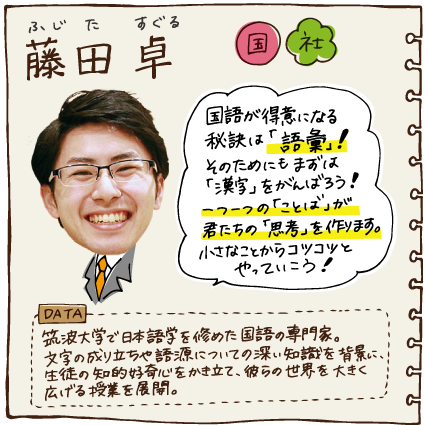 ふじ た すぐる
藤田 卓
国 社
国語が得意になる
秘訣は「語彙」!
そのためにもまずは
「漢字」をがんばろう!
一つ一つの「ことば」が
君たちの「思考」を作ります。
小さなことからコツコツと
やっていこう!
DATA
筑波大学で日本語学を修めた国語の専門家。
文字の成り立ちや語源についての深い知識を背景に、
生徒の知的好奇心をかき立て、彼らの世界を大きく
広げる授業を展開。